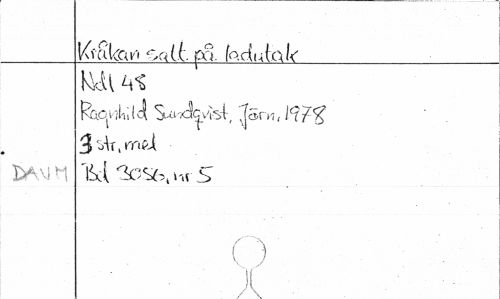 Kråkan satt på ladutak
Ndl 48
Ragnhild Sundqvist, Jörn, 1978
3 str, mel
DAUM Bd 3056, nr 5